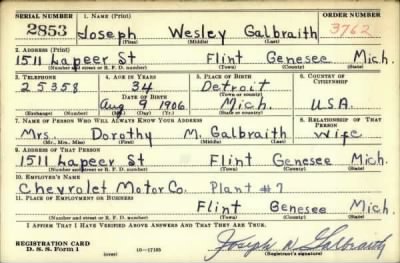 SERIAL NUMBER 1. NAME (Print) ORDER NUMBER
2853 Joseph Wesley Galbraith 3762
(First) (Middle) (Last)
2. ADDRESS (Print)
1511 Lapeer St Flint Genesee Mich.
(Number and street or R. F. D. number) (Town) (County) (State)
3. TELEPHONE 4. AGE IN YEARS 5. PLACE OF BIRTH 6. COUNTRY OF CITIZENSHIP
25358 34 Detroit
DATE OF BIRTH (Town or county)
Aug 9 1906 Mich. U.S.A.
(Exchange) (Number) (Mo.) (Day) (Yr.) (State or country)
7. NAME OF PERSON WHO WILL ALWAYS KNOW YOUR ADDRESS 8. RELATIONSHIP OF THAT PERSON
Mrs. Dorothy M. Galbraith Wife
(Mr., Mrs., Miss) (First) (Middle) (Last)
9. ADDRESS OF THAT PERSON
1511 Lapeer St Flint Genesee Mich.
(Number and street or R. F. D. number) (Town) (County) (State)
10. EMPLOYER'S NAME
Chevrolet Motor Co. Plant #7
11. PLACE OF EMPLOYMENT OR BUSINESS
Flint Genesee Mich
(Number and street or R. F. D. number) (Town) (County) (State)
I AFFIRM THAT I HAVE VERIFIED ABOVE ANSWERS AND THAT THEY ARE TRUE.
REGISTRATION CARD
D. S. S. Form 1 (over) 16—17105 Joseph W. Galbraith
(Registrant's signature)